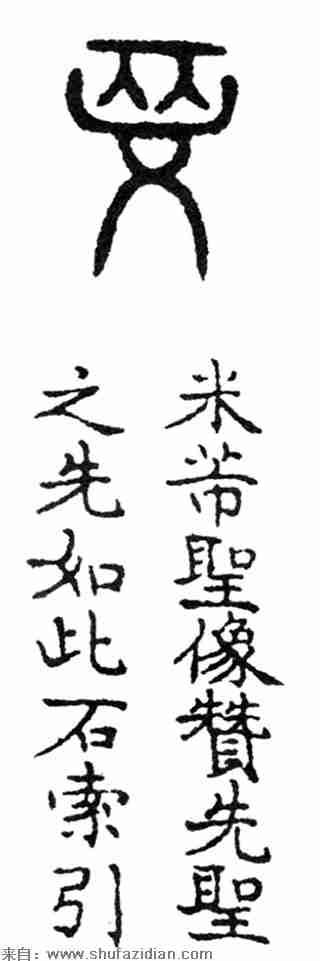 米芾聖像贊先聖
之先如此石索引
来自：www.shufazidian.com